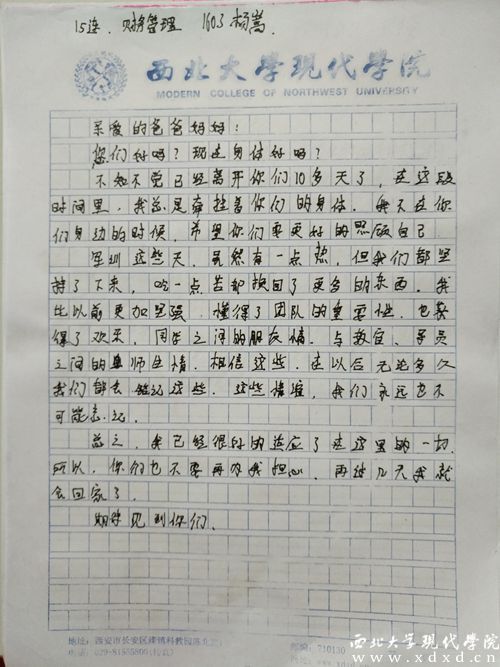 15连. 财务管理 1603 杨嵩.
西北大学现代学院
MODERN COLLEGE OF NORTHWEST UNIVERSITY
亲爱的爸爸妈妈:
您们好吗?现在身体好吗?
不知不觉已经离开你们10多天了,在这段
时间里,我总是牵挂着你们的身体.我不在你
们身边的时候,希望你们要更好的照顾自己
军训这些天,虽然有一点热,但我们都坚
持了下来,吃一点苦却换回了更多的东西.我
比以前更加坚强.懂得了团队的重要性.也获
得了欢乐,同学之间的朋友情.与教官、学员
之间的师生情.相信这些.在以后无论多久
我们都会铭记这些.这些情谊,我们永远也不
可能忘记.
总之,我已经很好的适应了在这里的一切.
所以,你们也不要再为我担心.再过几天我就
会回家了.
期待见到你们.
地址:西安市长安区滦镇科教园陈北路
电话:029-81555800
邮编:710130
西北大学现代学院
www.xdxd.cn